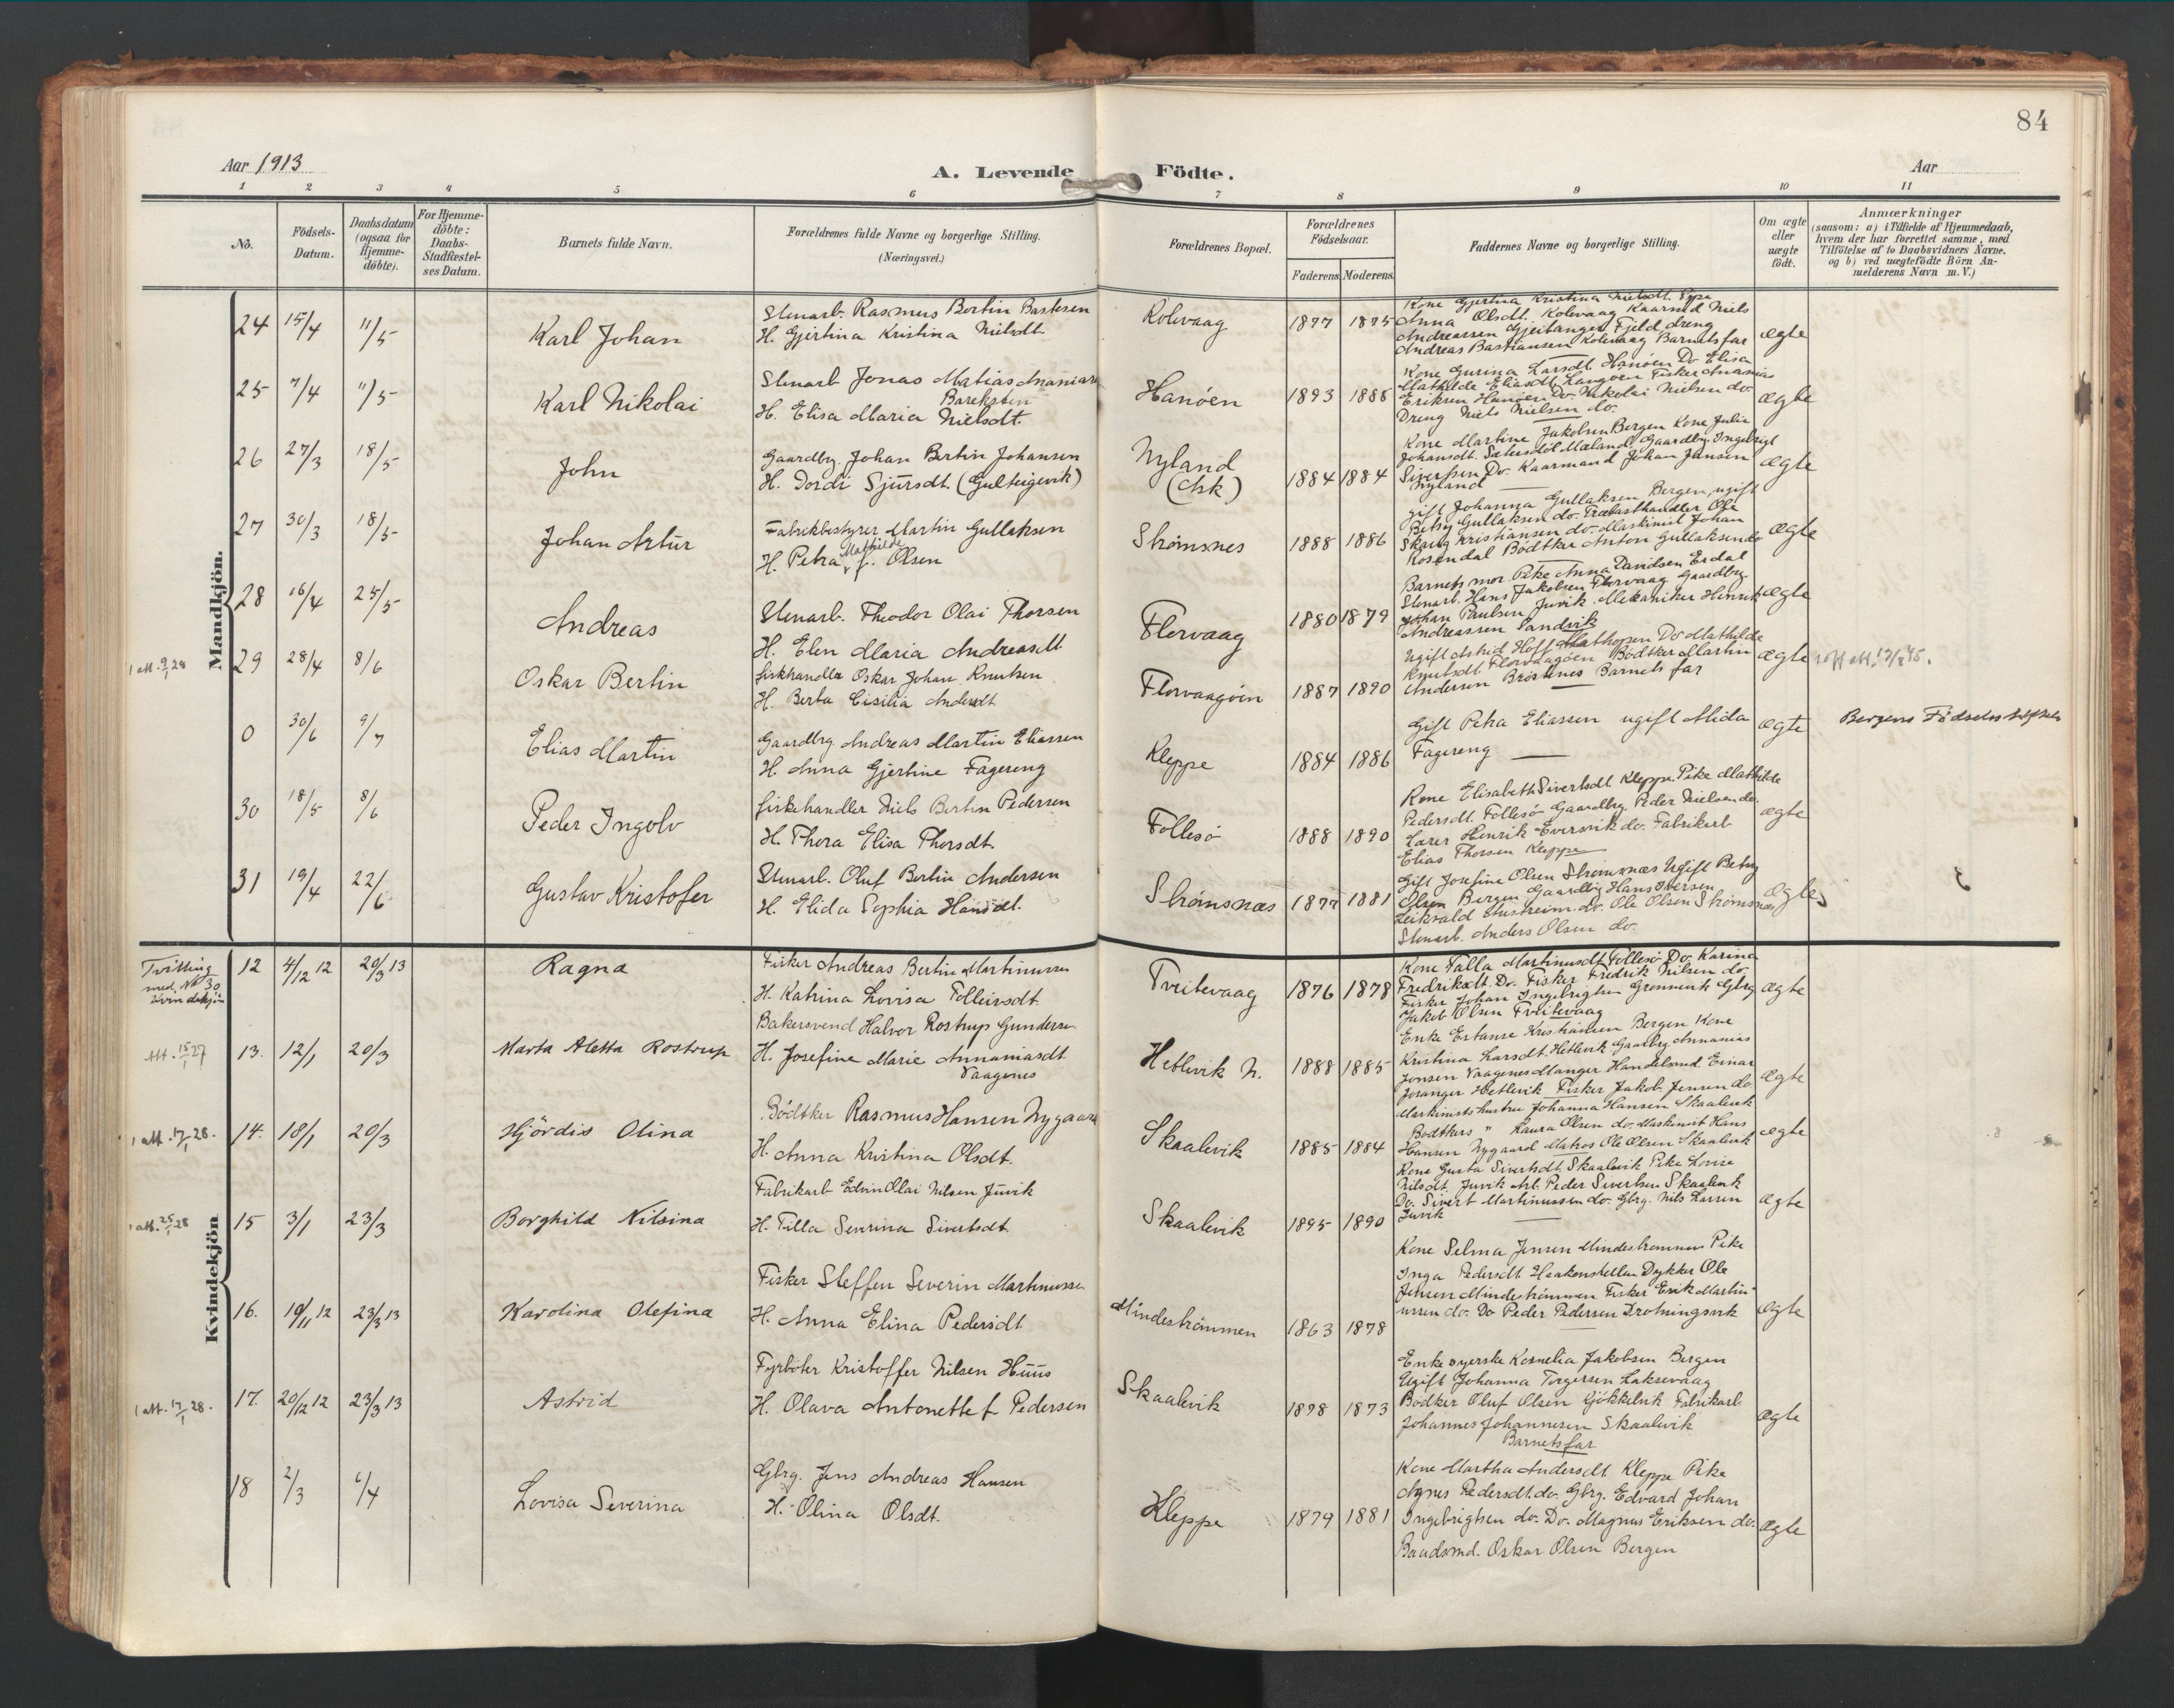 84
Aar 1913
A. Levende Födte.
Aar
1 2 3 4 5 6 7 8 9 10 11
No.
Födsels-Datum.
Daabsdatum (ogsaa for Hjemme-döbte).
For Hjemme-döbte: Daabs-Stadfæstel-ses Datum.
Barnets fulde Navn.
Forældrenes fulde Navne og borgerlige Stilling. (Næringsvei.)
Forældrenes Bopæl.
Forældrenes Födselsaar.
Faderens. Moderens.
Faddernes Navne og borgerlige Stilling.
Om ægte eller uægte födt.
Anmærkninger (saasom: a) i Tilfælde af Hjemmedaab, hvem der har forrettet samme, med Tilföielse af to Daabsvidners Navne, og b) ved uægtefödte Börn An-melderens Navn m.V.)
Mandkjön.
24 15/4 11/5 Karl Johan
Stenarb. Rasmus Bertin Bastesen
H. Gjertina Kristina Nielsdt.
Kolevaag 1877 1875
Kone Gjertina Kristina Nielsdt.
Anna Olsdt. Kolevaag Kaarmd Niels
Andreassen Gjeitanger Fjeld dreng
Andreas Bastiansen Kolevaag Barnets far
ægte
25 7/4 11/5 Karl Nikolai
Stenarb Jonas Matias Ananias
Bareksten
H. Elisa Maria Nielsdt.
Hanöen 1893 1888
Kone Gurina Larsdt. Hanöen Do Elisa
Mathilde Eliasdt. Langöen Fisker Ananias
Eriksen Hanöen Do. Nikolai Nielsen do.
Dreng Niels Nielsen do.
ægte
26 27/3 18/5 John
Gaardbr. Johan Bertin Johansen
H. Dordi Sjursdt. (Gulteigevik)
Nyland
(Ask)
1884 1884
Kone Martine Jakobsen Bergen Kone Julie
Johansdt. Sætersdal Mæland. Gaardbr. Ingebrigt
Sivertsen Do. Kaarmand Johan Jansen
Nyland
ægte
27 30/3 18/5 Johan Artur
Fabrikbestyrer Martin Gullaksen
Mathilde
H. Petra f. Olsen
Strömsnes 1888 1886
gift Johanna Gullaksen Bergen, ugift
Betsy Gullaksen do. Trælasthandler Ole
Skaug Kristiansen do. Maskinist Johan
Rosendal Bödtker Anton Gullaksen do
ægte
28 16/4 25/5 Andreas
Stenarb. Theodor Olai Thorsen
H. Elen Maria Andreasdt.
Florvaag 1880 1879
Barnets mor Pike Anna Davidsen Erdal
Stenarb. Hans Jakobsen Florvaag Gaardbr.
Johan Paulsen Juvik. Mekaniker Henrik
Andreassen Sandvik
ægte
29 28/4 8/6 Oskar Bertin
Fiskhandler Oskar Johan Knutsen
H. Berta Cisilia Andersdt
Florvaagöen 1887 1890
Ugift Astrid Hoff Mathopen Do Mathilde
Knutsdt Florvaagöen Bödtker Martin
Andersen Bröstenes Barnets far
ægte
0 30/6 9/7 Elias Martin
Gaardbrg. Andreas Martin Eliassen
H. Anna Gjertine Fagereng
Kleppe 1884 1886
Gift Petra Eliassen ugift Alida
Fagereng
ægte
Bergens Födselsstiftelse
30 18/5 8/6 Peder Ingolv
Fiskehandler Niels Bertin Pedersen
H. Thora Elisa Thorsdt.
Follesö 1888 1890
Kone Elisabeth Sivertsdt. Kleppe. Pike Mathilde
Pedersdt. Follesö Gaardbrg. Peder Nielsen do.
Lærer Henrik Eversvik do. Fabrikarb
Elias Thorsen Kleppe
ægte
31 19/4 22/6 Gustav Kristofer
Stenarb. Oluf Bertin Andersen
H. Elida Sophia Hansdt.
Strömsnæs 1877 1881
Gift Josefine Olsen Strömsnæs Ugift Betsy
Olsen Bergen Gaardbrg Hans Iversen
do. Ole Olsen Strömsnæs
Stenarb. Anders Olsen do.
ægte
Kvindekjön
Tvilling
med No 30
12 4/12 12 20/3 13 Ragna
Fisker Andreas Bertin Martinussen
H. Katrina Lovisa Folleivsdt.
Tveitevaag 1876 1878
Kone Talla Martinusdt Follesö Do. Karina
Fredriksdt. Do. Fisker Fredrik Nilsen do
Fisker Johan Ingebrigtsen Grönnevik Gbrg
Jakob Olsen Tveitevaag
ægte
Att. 15/1 27
13. 12/1 20/3 Marta Aletta Rostrup
Bakersvend Halvor Rostrup Gundersen
H. Josefine Marie Annaniasdt
Vaagenes
Hetlevik N. 1888 1885
Enke Kristiansen Bergen Kone
Kristina Larsdt. Hetlevik Gaardbr. Annanias
Jonsen Vaagenes Manger Handelsmd. Einar
Joranger Hetlevik Fisker Jakob Jensen do
ægte
1 att. 17/1 28.
14. 18/1 20/3 Hjördis Olina
Bödtker Rasmus Hansen Nygaard
H. Anna Kristina Olsdt.
Skaalevik 1885 1884
Maskinistshustru Johanna Hansen Skaalevik
Bödtkers " Laura Olsen do. Maskinist Hans
Hansen Nygaard Matros Ole Olsen Skaalevik
ægte
1 att. 25/1 28
15 3/1 23/3 Borghild Nilsina
Fabrikarb Edvin Olai Nilsen Juvik
H. Tilla Severina Sivertsdt.
Skaalevik 1895 1890
Kone Gusta Sivertsdt. Skaalevik Pike Lovise
Nilsdt. Juvik Arb. Peder Sivertsen Skaalevik
Do. Sivert Martinussen do. Gbrg. Nils Larsen
Juvik
ægte
16. 19/11 12 23/3 13 Karolina Olefina
Fisker Steffen Severin Martinussen
H. Anna Elina Pedersdt
Mindeströmmen 1863 1878
Kone Selma Jensen Mindeströmmen Pike
Inga Pedersdt. Haakonshellen Dykker Ole
Jensen Mindeströmmen Fisker Erik Martin-
ussen do. Do Peder Pedersen Drotningsvik
ægte
1 att. 17/1 28.
17. 20/12 12 23/3 13 Astrid
Fyrböter Kristoffer Nilsen Huus
H. Olava Antonette f. Pedersen
Skaalevik 1878 1873
Enke syerske Kornelia Jakobsen Bergen
Ugift Johanna Torgersen Laksevaag
Bödker Oluf Olsen Gjökkelvik Fabrikarb
Johannes Johannesen Skaalevik
Barnets far
ægte
18 2/3 6/4 Lovisa Severina
Gbrg. Jens Andreas Hansen
H. Olina Olsdt.
Kleppe 1879 1881
Kone Martha Andersdt. Kleppe Pike
Agnes Pedersdt. do. Gbrg. Edvard Johan
Ingebrigtsen do. Do. Magnus Eriksen do.
Baadsmd. Oskar Olsen Bergen
ægte